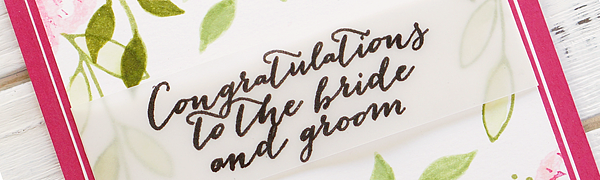 Congratulations
to the bride
and groom